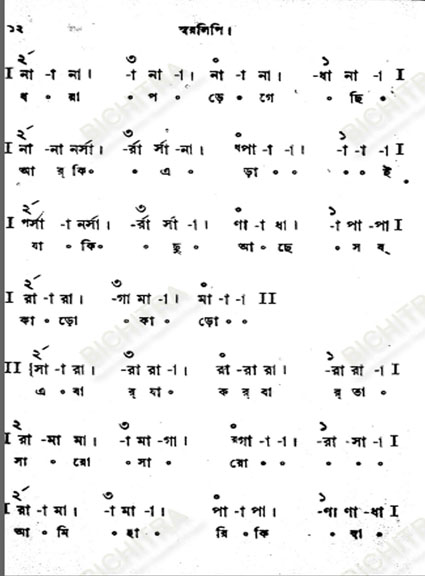 ১২ স্বরলিপি।
২´ ৩ ০ ১
I না -া না। -া না -া। না -া না। -ধা না -া I
ধ ০ রা ০ প ০ ড়ে ০ গে ০ ছি ০
২´ ৩ ০ ১
I না -না নর্সা। -র্রা র্সা -না। ধপা -া -া। -া -া -া I
আ র্ কি০ ০ এ ০ ড়া ০ ০ ০ ০ ই
২´ ৩ ০ ১
I পর্সা -া নর্সা। -র্রা র্সা -া। ণা -া ধা। -া পা -পা I
যা ০ কি০ ০ ছু ০ আ ০ ছে ০ স ব্
২´ ৩ ০
I রা -া রা। -গা মা -া। মা -া -া II
কা ০ ড়ো ০ কা ০ ড়ো ০ ০
২´ ৩ ০ ১
II {সা -া রা। -রা রা -া। রা -রা রা। -রা রা -া I
এ ০ বা র্ যা ০ ক র্ বা র্ তা ০
২ ৩ ০ ১
I রা -মা মা। -া মা -গা। রগা -া -া। -রা -সা -া I
সা ০ রো ০ সা ০ রো ০ ০ ০ ০ ০
২´ ৩ ০ ১
I রা -া মা। -া মা -া। পা -া পা। -পা ণা -ধা I
আ ০ মি ০ হা ০ রি ০ কি ০ বা ০